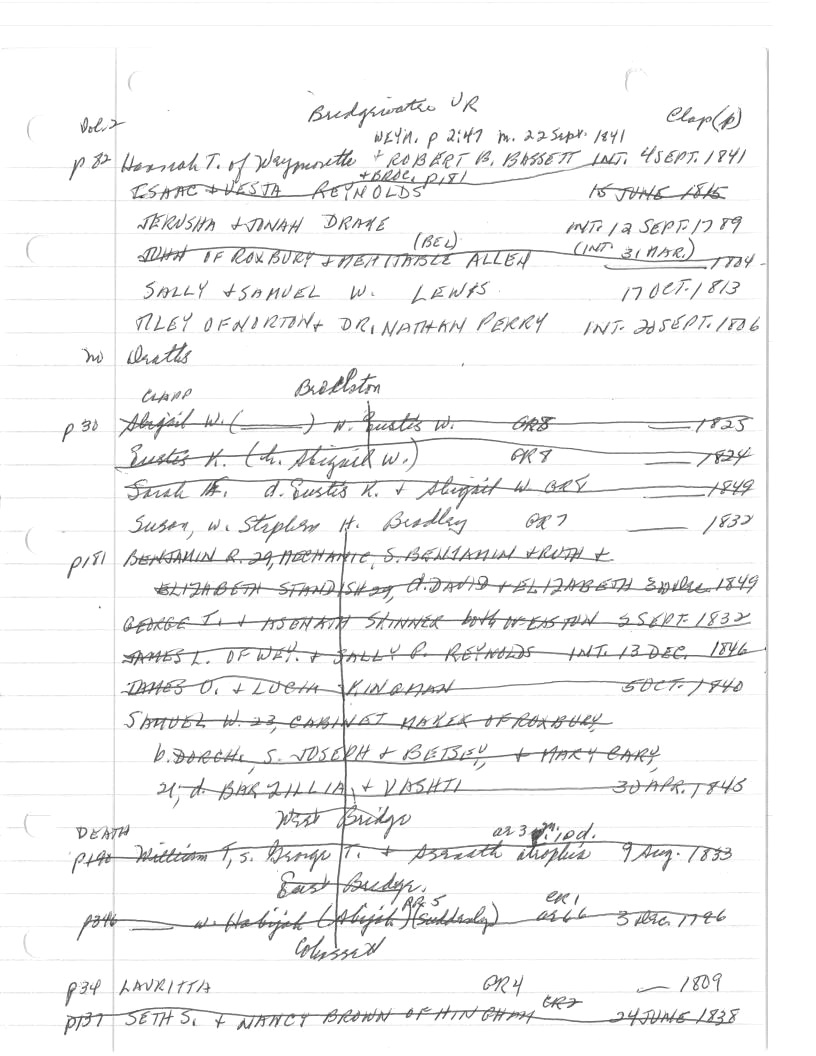 Bridgewater VR
Vol. 2 Clap(p)
WEYM. p 2:47 m. 22 Sept. 1841
p 82 Hannah T. of Weymouth + ROBERT B. BASSETT INT. 4 SEPT. 1841
+ BROC. p181
ISAAC + VESTA REYNOLDS 15 JUNE 1815
JERUSHA + JONAH DRAKE INT. 12 SEPT. 1789
(BEL) (INT. 31 MAR.)
JOHN OF ROXBURY + MEHITABLE ALLEN 1804
SALLY + SAMUEL W. LEWIS 17 OCT. 1813
OF NORTON + DR. NATHAN PERRY INT. 20 SEPT. 1806
no Deaths
CLAPP Brockton
p 30 Abigail W. ( ) w. Eustis W. GR8 1825
Eustis K. (h. Abigail W.) GR8 1824
Sarah d. Eustis K. + Abigail W GR8 1849
Susan, w. Stephen H. Bradley GR7 1832
p181 BENJAMIN R. 29, MECHANIC, S. BENJAMIN + RUTH +
ELIZABETH STANDISH 29, d. DAVID + ELIZABETH 3 Dec. 1849
GEORGE T. + ASENATH SKINNER both of EASTON 2 SEPT. 1832
JAMES L. OF WEY. + SALLY P. REYNOLDS INT. 13 DEC. 1846
JAMES O. + LUCIA KINGMAN 5 OCT. 1840
SAMUEL W. 23, CABINET MAKER OF ROXBURY,
b. DORCH., S. JOSEPH + BETSEY, + MARY CARY,
21, d. BARZILLIA, + VASHTI 30 APR. 1845
West Bridge
DEATH ae 3 10d.
p190 William T, s. George T. + Asenath atrophia 9 Aug. 1833
East Bridge.
PR.5 CR1
p346 w. Habijah (Abijah) (suddenly) ae 66 3 Dec. 1796
Cohasset
p34 LAURITTA GR4 1809
CR2
p137 SETH S. + NANCY BROWN OF HINGHAM 24 JUNE 1838